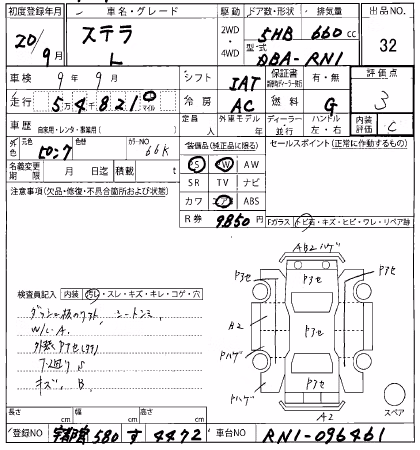 初度登録年月 車名・グレード 駆動 ドア数・形状 排気量 出品NO
20/9月 ステラ 2WD・4WD 5HB 660cc 32
L 型式 DBA-RN1
車検 9年9月 シフト IAT 保証書 有・無 評価点
走行 5万4千821 マイル 冷房 AC 燃料 G 3
車歴 自家用・レンタ・事業用( ) 定員 人 外車モデル 年 ディーラー・並行 ハンドル 左・右 内装評価 C
外色 元色 ピンク 色替 カラーNO 66K
名義変更期限 月 日 迄 積載 t
装備品(純正品に限る)
PS PW AW
SR TV ナビ
カワ エア ABS
R券 9850円
セールスポイント(正常に作動するもの)
注意事項(欠品・修復・不具合箇所および状態)
Fガラス トビ石・キズ・ヒビ・ワレ・リペア跡
検査員記入 内装 汚レ・スレ・キズ・キレ・コゲ・穴
シートシミ
W/L.A.
キズ、B.
AB2ハゲ
Pアセ
Pアセ
Pアセ
B2
Pアセ
Pハゲ
Pハゲ
Pアセ
A2
スペア
長さ cm 幅 cm 高さ cm
登録NO 宇都宮 580 す 4472 車台NO RN1-096461